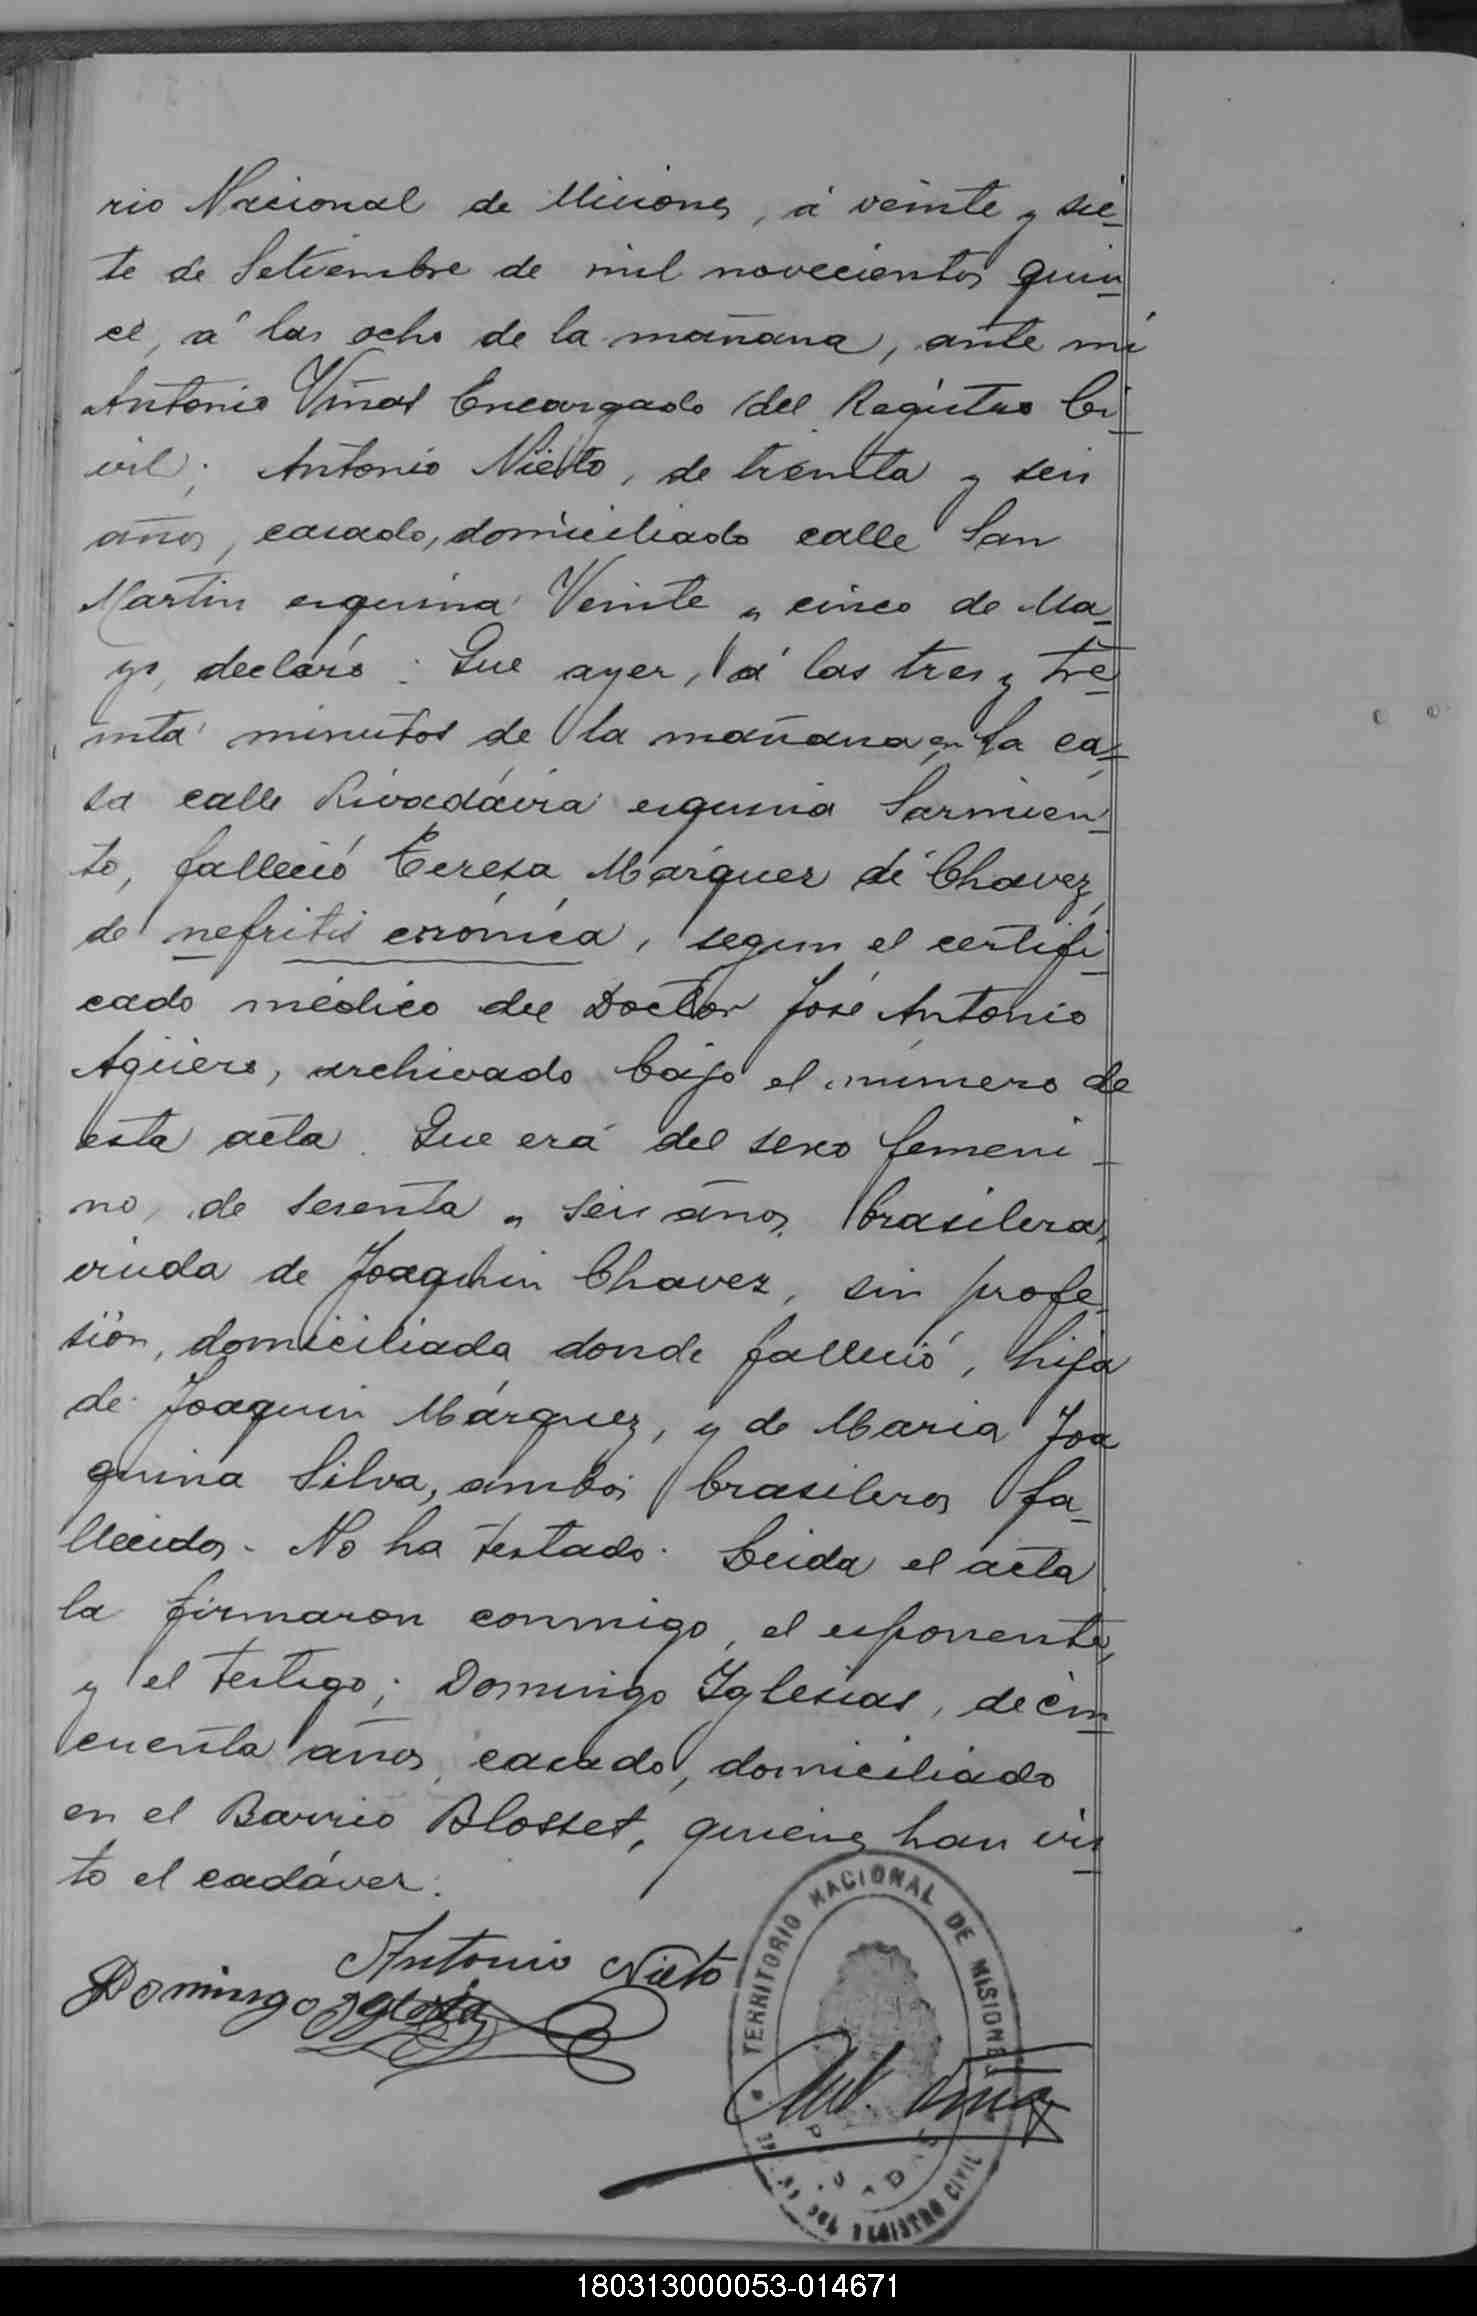 rio Nacional de Misiones, á veinte y sie-
te de Setiembre de mil novecientos quin-
ce, á las ocho de la mañana, ante mi
Antonio Viñas Encargado del Registro Ci-
vil; Antonio Nieto, de treinta y seis
años, casado, domiciliado calle San
Martin esquina Veinte y cinco de Ma-
yo, declaró: Que ayer, á las tres y tre-
inta minutos de la mañana, en la ca-
sa calle Rivadávia esquina Sarmien-
to, falleció Teresa Márquez de Chavez,
de nefritis crónica, segun el certifi-
cado médico del Doctor José Antonio
Agüero, archivado bajo el número de
esta acta. Que era del sexo femeni-
no, de sesenta y seis años, brasilera,
viuda de Joaquin Chavez, sin profe-
sión, domiciliada donde falleció, hija
de Joaquin Márquez, y de Maria Joa
quina Silva, ambos brasileros fa-
llecidos. No ha testado. Leida el acta
la firmaron conmigo, el esponente,
y el testigo; Domingo Iglesias, de cin-
cuenta años, casado, domiciliado
en el Barrio Blosset, quienes han vis-
to el cadáver.
Antonio Nieto
Domingo Iglesias
TERRITORIO NACIONAL DE MISIONES
POSADAS
DEL REGISTRO CIVIL
Ant. Viñas
180313000053-014671